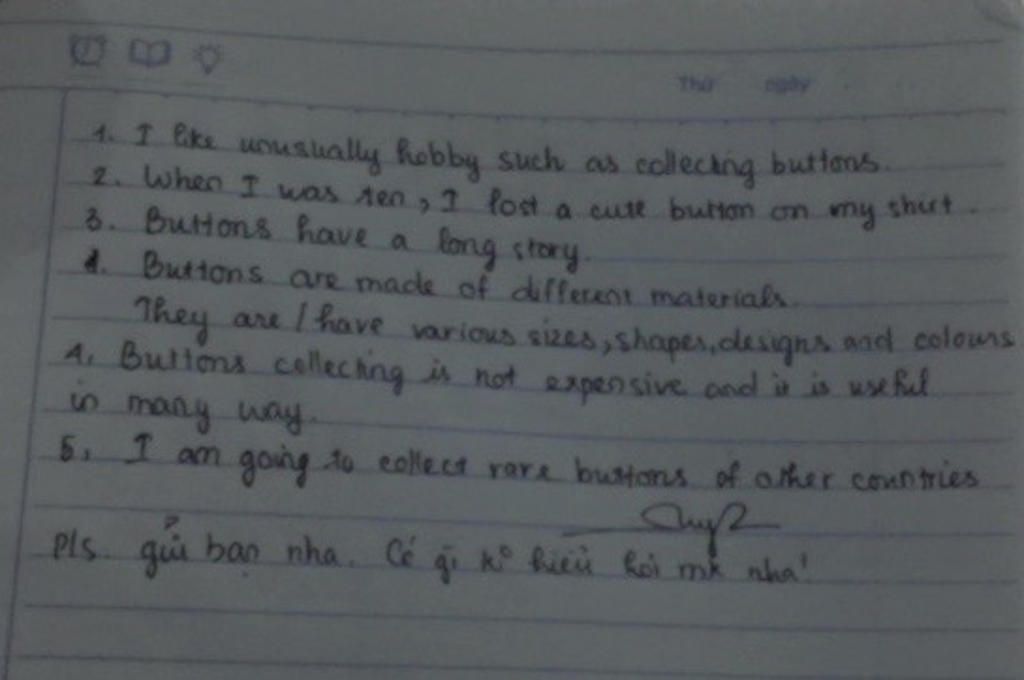 Thứ ngày
1. I like unusually hobby such as collecting buttons.
2. When I was ten, I lost a cute button on my shirt.
3. Buttons have a long story.
Buttons are made of different materials.
They are / have various sizes, shapes, designs and colours
4. Buttons collecting is not expensive and it is useful
in many way.
5. I am going to collect rare buttons of other countries
P/s. gửi bạn nha. Có gì ko hiểu hỏi mk nha!